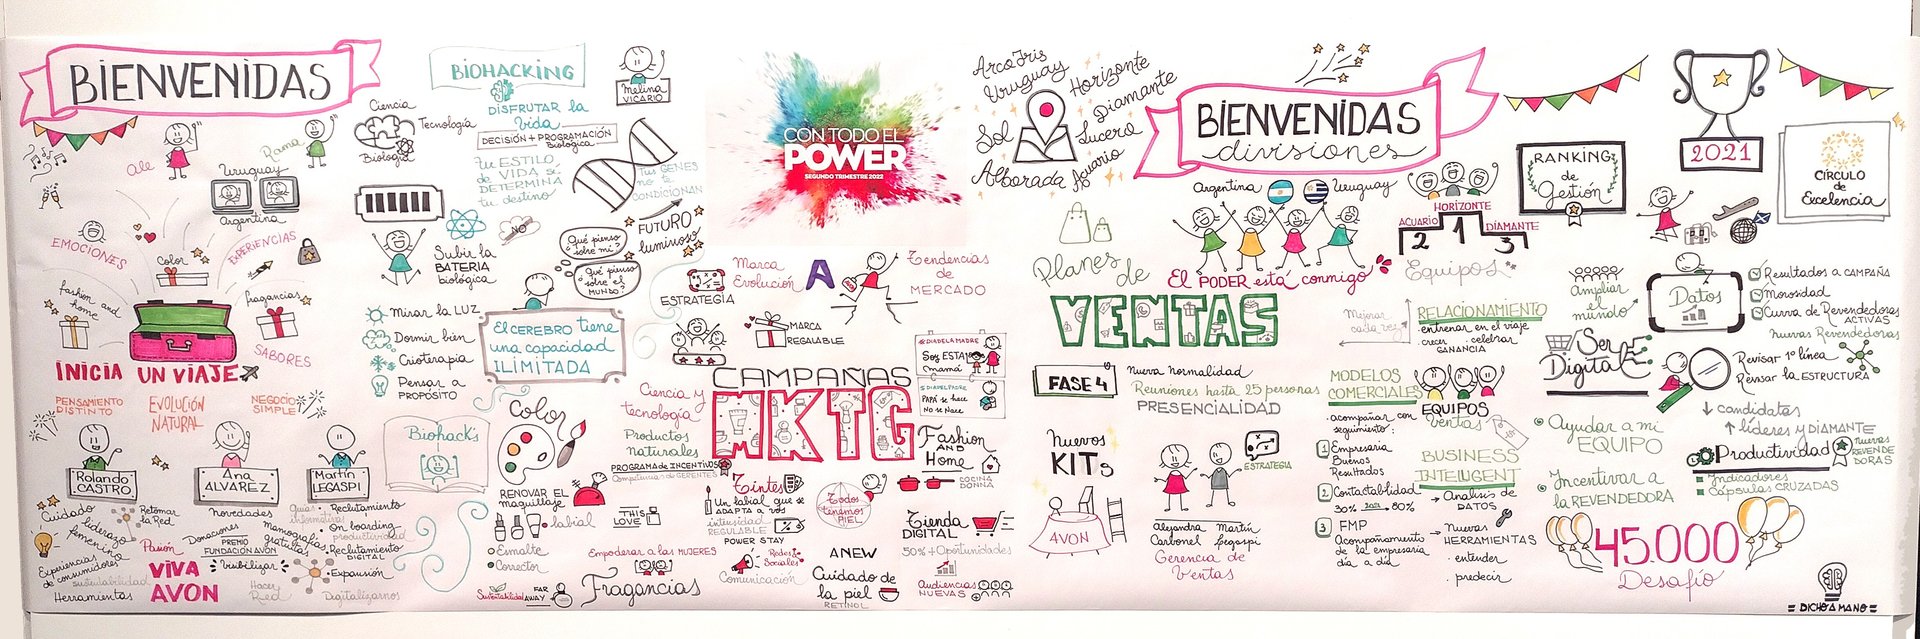 BIENVENIDAS
Ale
Rama
Uruguay
Argentina
EMOCIONES
Color
EXPERIENCIAS
fashion and
home
fragancias
SABORES
INICIA UN VIAJE
PENSAMIENTO
DISTINTO
EVOLUCIÓN
NATURAL
NEGOCIO
SIMPLE
Rolando
CASTRO
Ana
ALVAREZ
Martín
LEGASPI
Cuidado
liderazgo
femenino
Retomar
la Red
Experiencias
de consumidores
Sustentabilidad
Herramientas
Pasión
VIVA
AVON
novedades
Donaciones
PREMIO
FUNDACIÓN AVON
Visibilizar
Hacer
Red
monografías
gratuitas
Reclutamiento
On boarding
productividad
Reclutamiento
DIGITAL
Expansión
Digitalizarnos
BIOHACKING
Melina
VICARIO
DISFRUTAR la
Vida
DECISIÓN + PROGRAMACIÓN
Biológica
Ciencia
Tecnología
Biología
tu ESTILO
de VIDA
DETERMINA
tu destino
Tus GENES
no te
CONDICIONAN
NO
FUTURO
luminoso
Subir la
BATERIA
biológica
Qué pienso
sobre mi?
Qué pienso
sobre el
MUNDO?
Mirar la LUZ
Dormir bien
Crioterapia
Pensar a
PROPÓSITO
El CEREBRO tiene
una capacidad
ILIMITADA
Biohack's
CON TODO EL
POWER
SEGUNDO TRIMESTRE 2022
ESTRATEGIA
Marca
Evolución
A
Tendencias
de
MERCADO
MARCA
REGALABLE
#DIADELAMADRE
Sos ESTA
mamá
#DIADELPADRE
PAPÁ se hace
No se Nace
CAMPAÑAS
MKTG
Color
Ciencia y
tecnología
Productos
naturales
PROGRAMA de INCENTIVOS
Competencias de GERENTES
RENOVAR EL
maquillaje
labial
Esmalte
Corrector
THIS
LOVE
Empoderar a las MUJERES
Sustentabilidad
FAR
AWAY
Fragancias
Tintes
Un labial que se
ADAPTA a vos
intensidad
REGULABLE
POWER STAY
Redes
Sociales
Comunicación
Todos
tenemos
PIEL
ANEW
Cuidado de
la piel
RETINOL
Fashion
AND
Home
COCINA
DONNA
Tienda
DIGITAL
50% + Oportunidades
Audiencias
NUEVAS
Arco Iris
Uruguay
Horizonte
Diamante
Sol
Lucero
Alborada
Acuario
BIENVENIDAS
divisiones
Argentina
Uruguay
El PODER está conmigo
Planes de
VENTAS
FASE 4
nueva normalidad
Reuniones hasta 25 personas
PRESENCIALIDAD
Nuevos
KITs
AVON
ESTRATEGIA
Alejandra
Carbonel
Martín
Legaspi
Gerencia de
Ventas
HORIZONTE
ACUARIO
DIAMANTE
2 1 3
Equipos
Mejorar
cada vez
RELACIONAMIENTO
entrenar en el viaje
crecer
celebrar
GANANCIA
MODELOS
COMERCIALES
acompañar con
seguimiento:
1 Empresaria
Buenos
Resultados
2 Contactabilidad
30% 2021 80%
3 FMP
Acompañamiento
de la empresaria
día a día
EQUIPOS
Ventas
BUSINESS
INTELIGENT
Analisis de
DATOS
Nuevas
HERRAMIENTAS
entender
predecir
RANKING
de
Gestión
2021
CÍRCULO
de
Excelencia
Ampliar
el
mundo
Datos
Resultados a CAMPAÑA
Morosidad
Curva de Revendedoras
ACTIVAS
nuevas Revendedoras
Ser
Digital
Revisar 1º línea
Revisar la ESTRUCTURA
candidatas
líderes y DIAMANTE
Productividad
nuevas
REVENDE
DORAS
Indicadores
Cápsulas CRUZADAS
Ayudar a mi
EQUIPO
Incentivar a
la REVENDEDORA
45.000
Desafío
= DICHO A MANO =